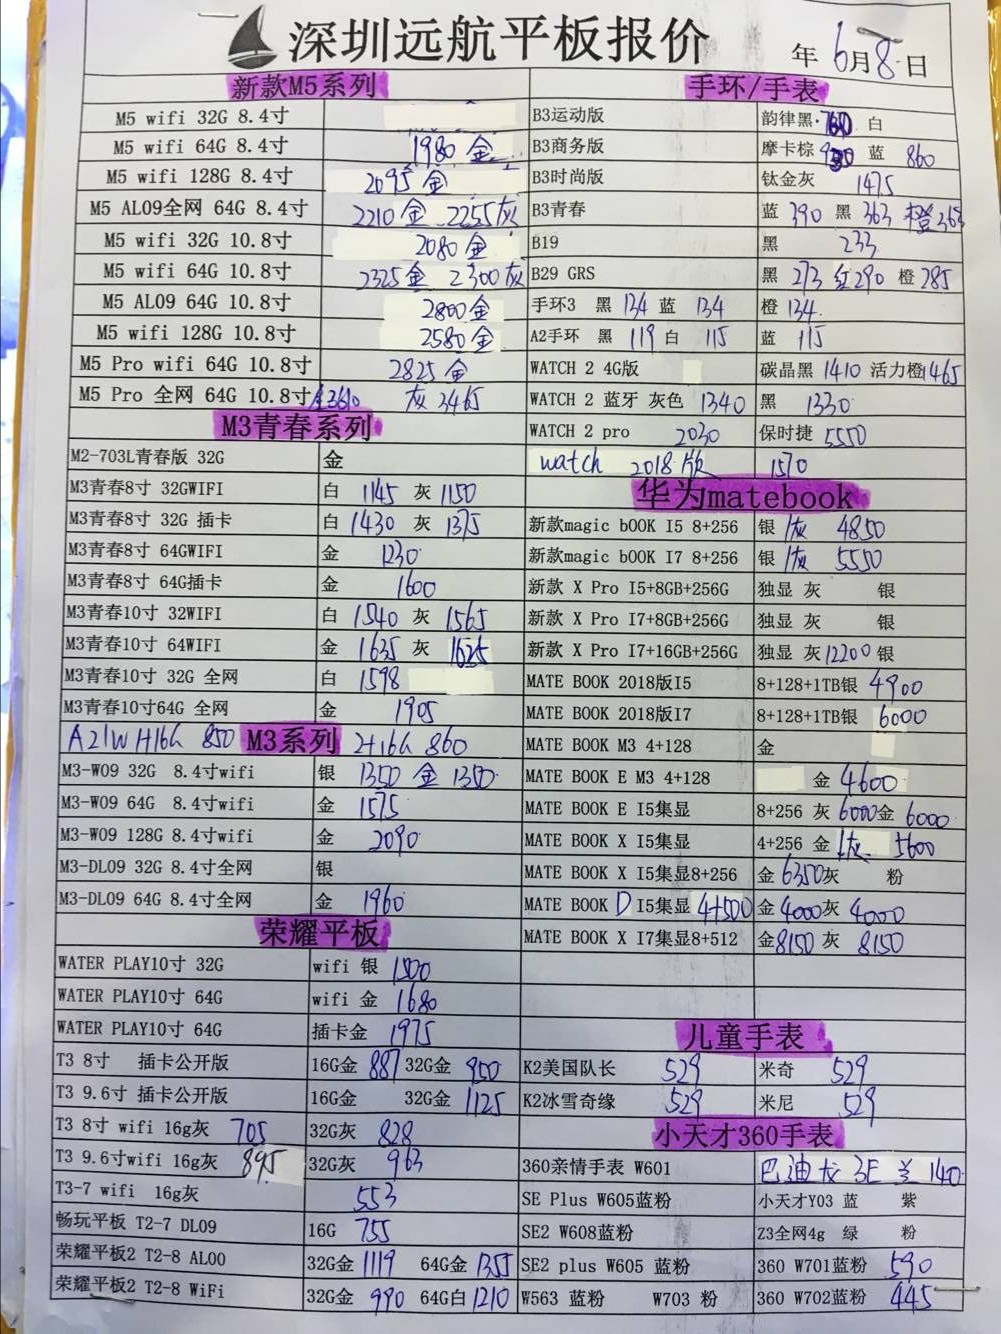 深圳远航平板报价 年 6月8日
新款M5系列 手环/手表
M5 wifi 32G 8.4寸 B3运动版 韵律黑 760 白
M5 wifi 64G 8.4寸 1980 金 B3商务版 摩卡棕 蓝 860
M5 wifi 128G 8.4寸 2095 金 B3时尚版 钛金灰 1475
M5 AL09全网 64G 8.4寸 2210 金 2255灰 B3青春 蓝 390 黑 363 橙 363
M5 wifi 32G 10.8寸 2080 金 B19 黑 233
M5 wifi 64G 10.8寸 2325金 2300灰 B29 GRS 黑 273 红290 橙 285
M5 AL09 64G 10.8寸 2800金 手环3 黑 134 蓝 134 橙 134
M5 wifi 128G 10.8寸 2580金 A2手环 黑 119 白 115 蓝 115
M5 Pro wifi 64G 10.8寸 2825 金 WATCH 2 4G版 碳晶黑 1410 活力橙1465
M5 Pro 全网 64G 10.8寸 金3610 灰 3465 WATCH 2 蓝牙 灰色 1340 黑 1330
M3青春系列 WATCH 2 pro 2030 保时捷 5550
M2-703L青春版 32G 金 watch 2018版 1570
M3青春8寸 32GWIFI 白 1145 灰 1150 华为matebook
M3青春8寸 32G 插卡 白 1430 灰 1375 新款magic bOOK I5 8+256 银 灰 4850
M3青春8寸 64GWIFI 金 1230 新款magic bOOK I7 8+256 银 灰 5550
M3青春8寸 64G插卡 金 1600 新款 X Pro I5+8GB+256G 独显 灰 银
M3青春10寸 32WIFI 白 1540 灰 1565 新款 X Pro I7+8GB+256G 独显 灰 银
M3青春10寸 64WIFI 金 1635 灰 1625 新款 X Pro I7+16GB+256G 独显 灰12200 银
M3青春10寸 32G 全网 白 1598 MATE BOOK 2018版I5 8+128+1TB银 4900
M3青春10寸64G 全网 金 1905 MATE BOOK 2018版I7 8+128+1TB银 6000
A21W H16G 850 M3系列 2+16G 860 MATE BOOK M3 4+128 金
M3-W09 32G 8.4寸wifi 银 1350 金 1350 MATE BOOK E M3 4+128 金 4600
M3-W09 64G 8.4寸wifi 金 1575 MATE BOOK E I5集显 8+256 灰 6000金 6000
M3-W09 128G 8.4寸wifi 金 2090 MATE BOOK X I5集显 4+256 金 灰 5600
M3-DL09 32G 8.4寸全网 银 MATE BOOK X I5集显8+256 金 6350灰 粉
M3-DL09 64G 8.4寸全网 金 1960 MATE BOOK D I5集显 4+500 金 4000灰 4000
荣耀平板 MATE BOOK X I7集显8+512 金8150 灰 8150
WATER PLAY10寸 32G wifi 银 1500
WATER PLAY10寸 64G wifi 金 1680
WATER PLAY10寸 64G 插卡金 1975 儿童手表
T3 8寸 插卡公开版 16G金 887 32G金 950 K2美国队长 529 米奇 529
T3 9.6寸 插卡公开版 16G金 32G金 1125 K2冰雪奇缘 529 米尼 529
T3 8寸 wifi 16g灰 705 32G灰 828 小天才360手表
T3 9.6寸wifi 16g灰 895 32G灰 963 360亲情手表 W601 巴迪龙 3E 兰 140
T3-7 wifi 16g灰 553 SE Plus W605蓝粉 小天才Y03 蓝 紫
畅玩平板 T2-7 DL09 16G 755 SE2 W608蓝粉 Z3全网4g 绿 粉
荣耀平板2 T2-8 AL00 32G金 1119 64G金 1355 SE2 plus W605 蓝粉 360 W701蓝粉 590
荣耀平板2 T2-8 WiFi 32G金 990 64G白 1210 W563 蓝粉 W703 粉 360 W702蓝粉 445